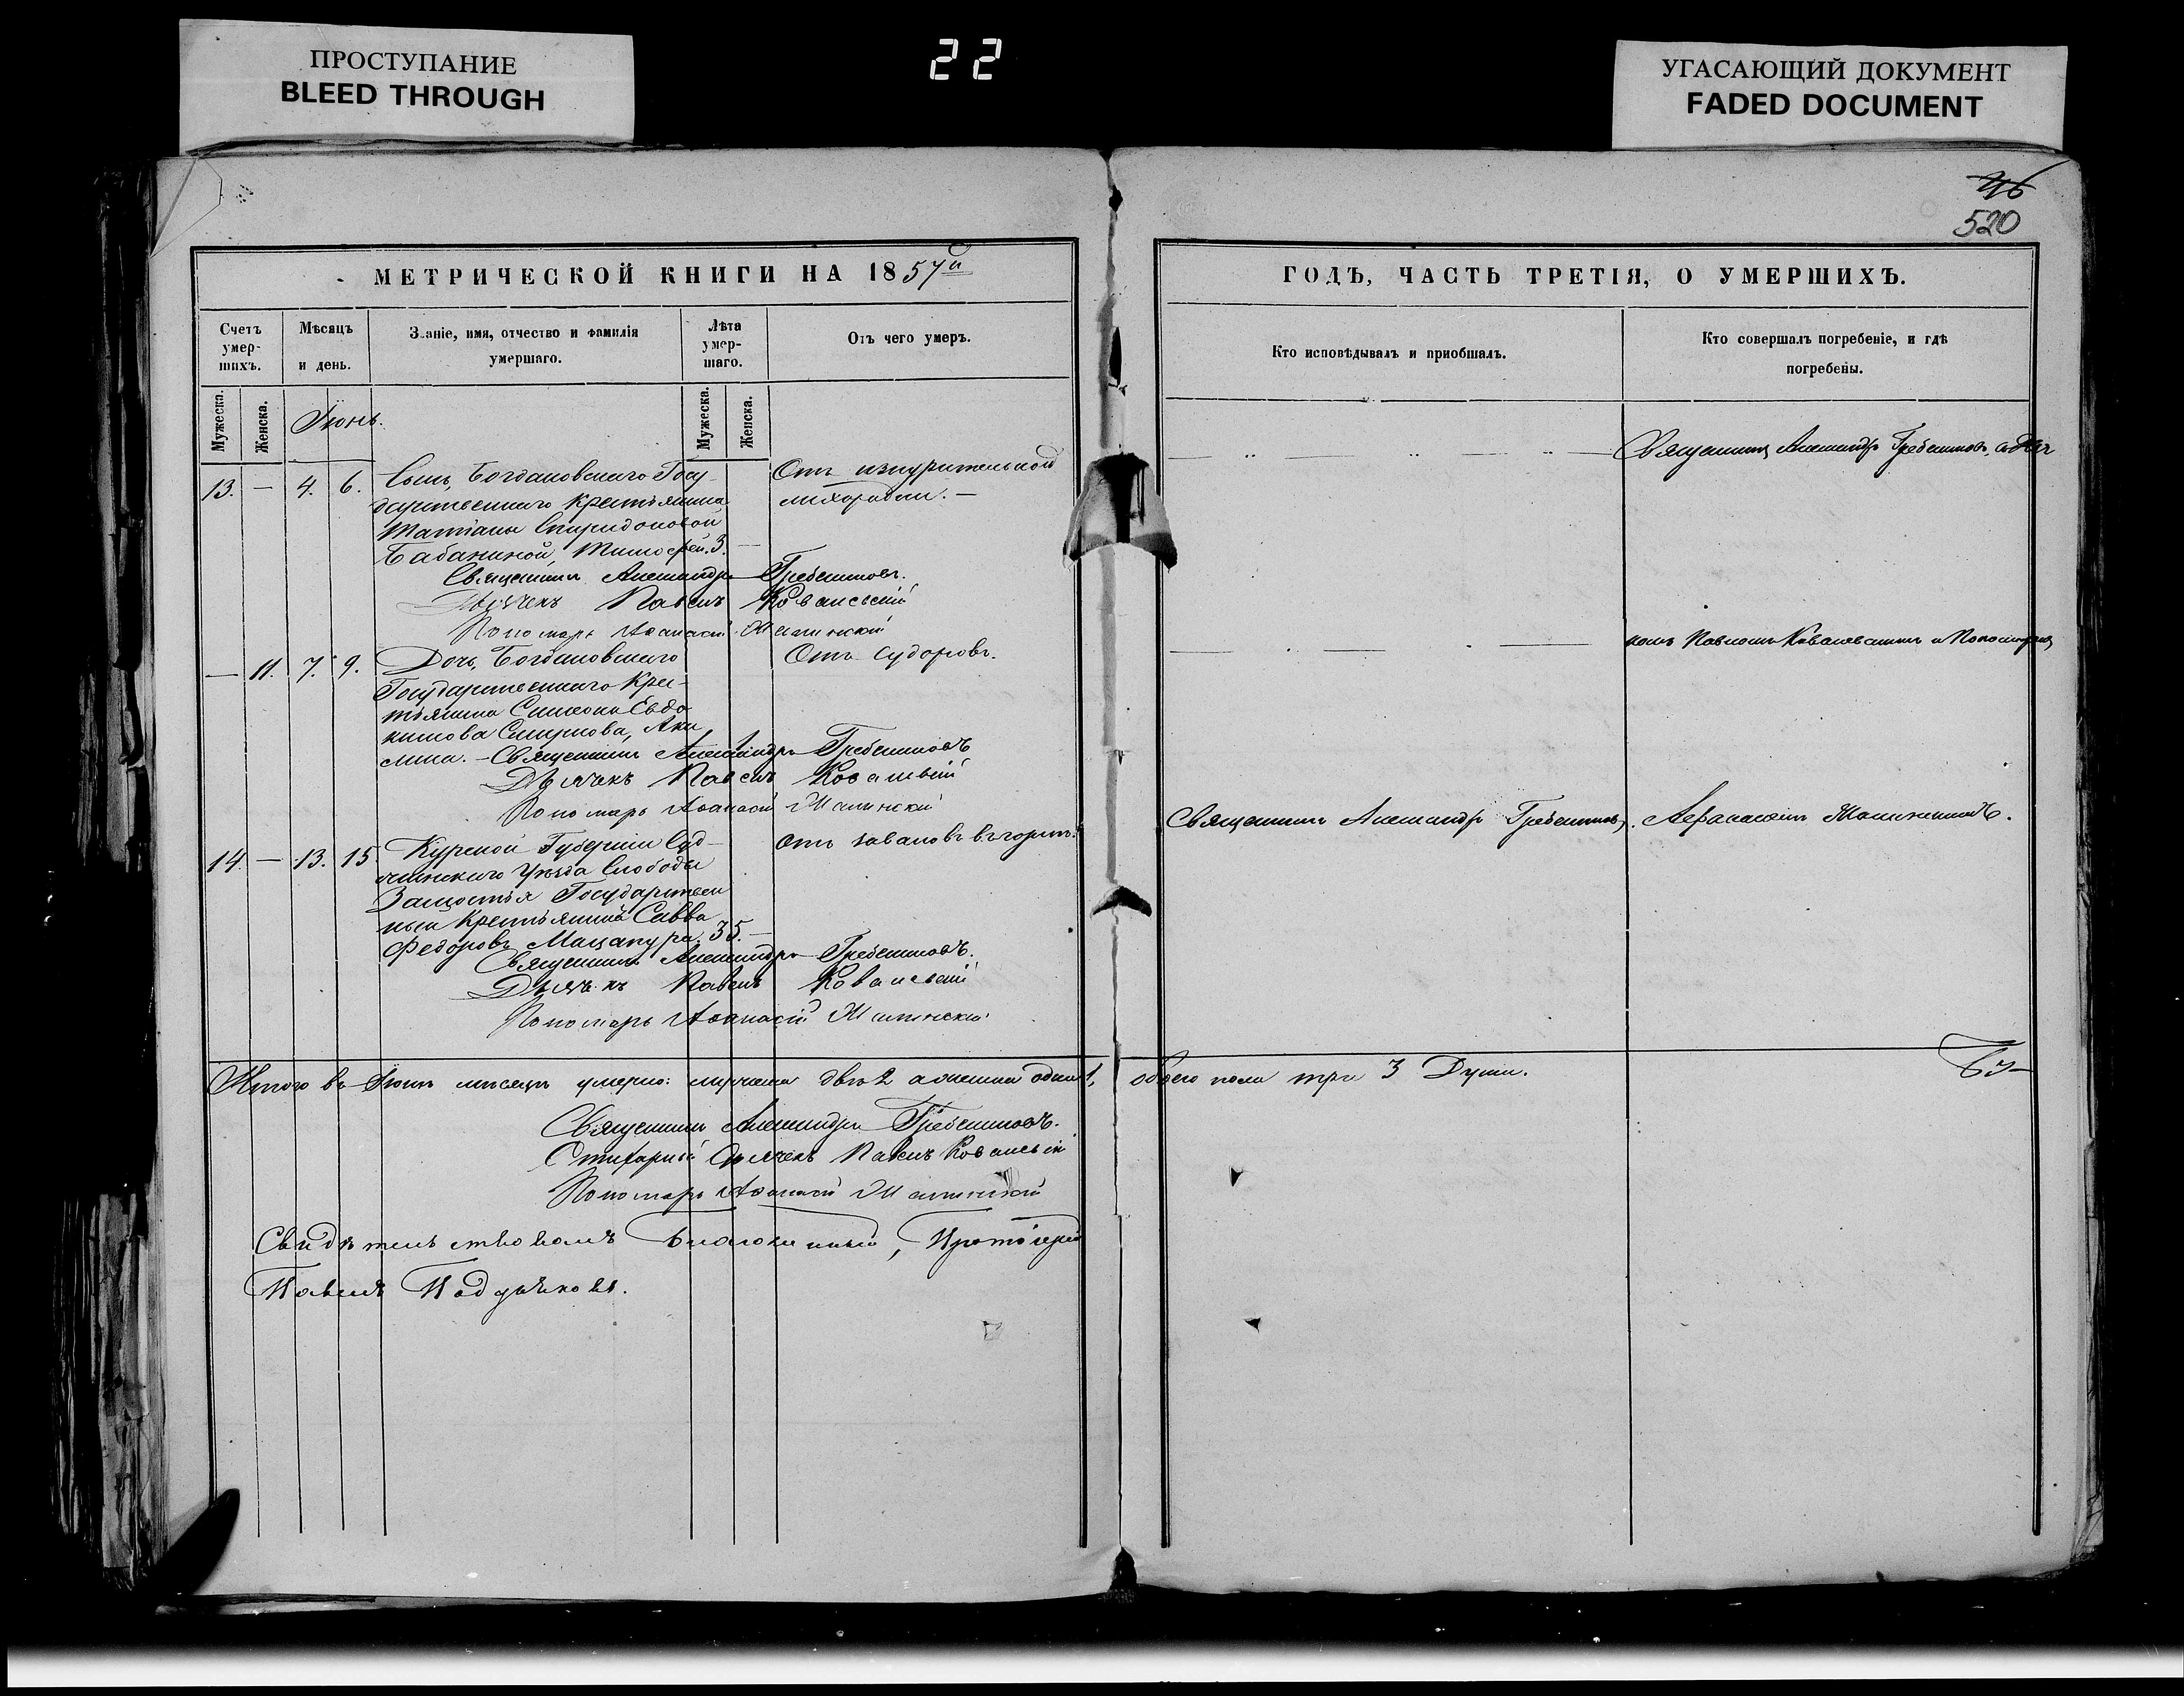 ПРОСТУПАНИЕ
BLEED THROUGH
22
УГАСАЮЩИЙ ДОКУМЕНТ
FADED DOCUMENT
46
520
МЕТРИЧЕСКОЙ КНИГИ НА 1857й
Счетъ умер-шихъ.
Мѣсяцъ и день.
Званіе, имя, отчество и фамилія умершаго.
Лѣта умер-шаго.
Отъ чего умеръ.
Мужеска.
Женска.
Іюнь.
Мужеска.
Женска.
13. — 4. 6. Сынъ, Богдановскаго Госу-
дарственнаго Крестьянина
Татіаны Спиридоновой
Бабаниной, Тимофей. 3. —
Отъ изнурительной
лихорадки. —
Священникъ Александръ Гребенниковъ.
Дьячекъ Павелъ Ковалевскій
Пономарь Аѳанасій
— 11. 7. 9. Дочь, Богдановскаго
Государственнаго Крес-
тьянина Симеона Евдо
кимова Смирнова, Аки
лина. —
Отъ судоровъ.
Священникъ Александръ Гребенниковъ
Дьячекъ Павелъ Ковалевскій
Пономарь Аѳанасій
14. — 13. 15. Курской Губерніи Суд-
жинскаго Уѣзда Слободы
Замостья Государствен
ный Крестьянинъ Савва
Федоровъ Мацапура. 35. —
отъ заваловъ
Священникъ Александръ Гребенниковъ.
Дьячекъ Павелъ Ковалевскій
Пономарь Аѳанасій
Итого въ Іюнѣ мѣсяцѣ умерло: мужеска два 2 а женска одна 1,
Священникъ Александръ Гребенниковъ.
Стихарный Дьячекъ Павелъ Ковалевскій
Пономарь Аѳанасій
Свидѣтельствовалъ Благочинный, Протоіерей
Павелъ
ГОДЪ, ЧАСТЬ ТРЕТІЯ, О УМЕРШИХЪ.
Кто исповѣдывалъ и приобщалъ.
Кто совершалъ погребеніе, и гдѣ погребены.
Священникъ Александръ Гребенниковъ, съ Дьяч
комъ Павломъ Ковалевскимъ и Пономаремъ
Священникъ Александръ Гребенниковъ.
Афанасіемъ
обоего пола три 3 Души.